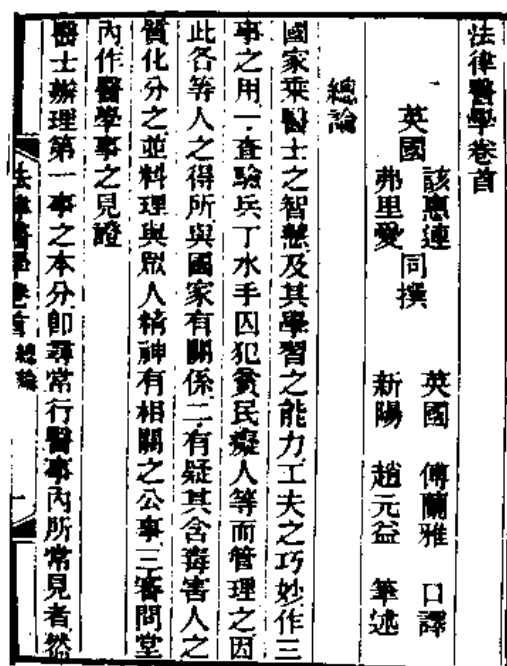 法律醫學卷首
英國 該惠連 弗里愛 同撰 英國 傅蘭雅 口譯 新陽 趙元益 筆述
總論
國家乘醫士之智慧及其學習之能力工夫之巧妙作三
事之用一查驗兵丁水手囚犯貧民癡人等而管理之因
此各等人之得所與國家有關係二有疑其含毒害人之
質化分之並料理與眾人精神有相關之公事三審問堂
內作醫學事之見證
醫士辦理第一事之本分卽尋常行醫事內所常見者然
法律醫學卷首 總論